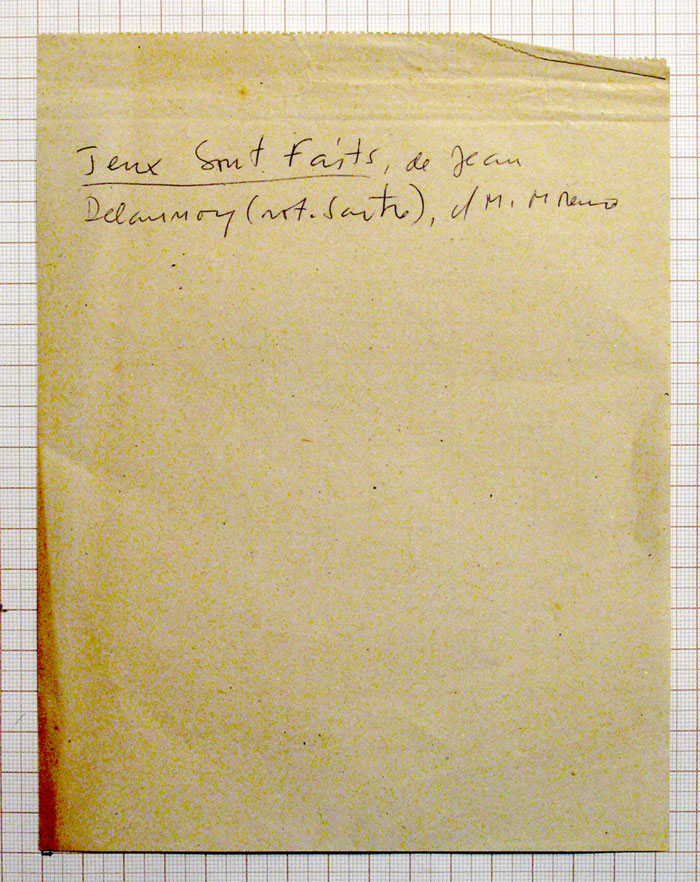 Jeux Sont Faits, de Jean
Delannoy (rot. Sartre), c/ M. Moreno